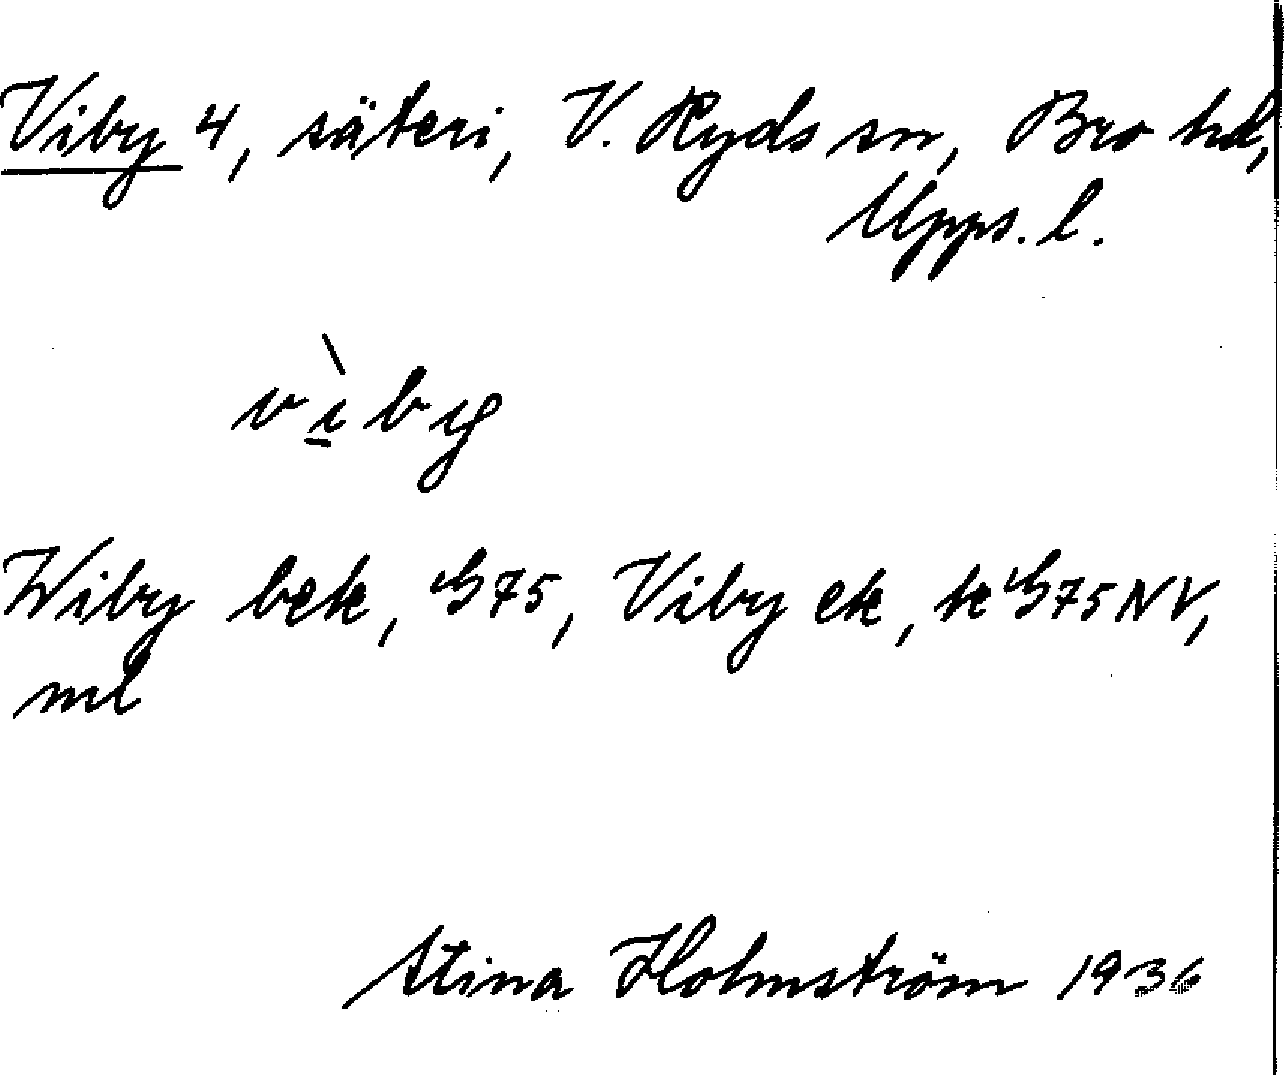 Viby 4, säteri, V. Ryds sn, Bro hd,
Upps. l.
vìby
Wiby bek, G75, Viby ek, tc G75NV,
ml
Stina Holmström 1936